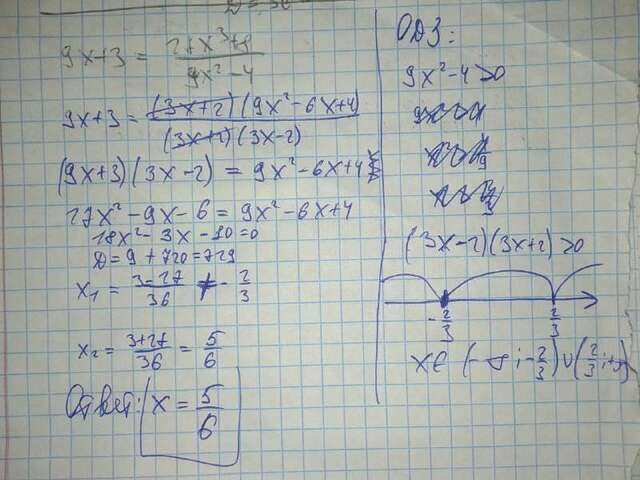 9x+3 = (27x³+8)/(9x²-4)
9x+3 = (3x+2)(9x²-6x+4)/(3x+2)(3x-2)
(9x+3)(3x-2) = 9x²-6x+4
27x²-9x-6 = 9x²-6x+4
18x²-3x-10=0
D = 9+720=729
x₁ = (3-27)/36 ≠ -2/3
x₂ = (3+27)/36 = 5/6
Ответ: x = 5/6
ОДЗ:
9x²-4>0
(3x-2)(3x+2)>0
-2/3 2/3
x∈(-∞;-2/3)∪(2/3;+∞)